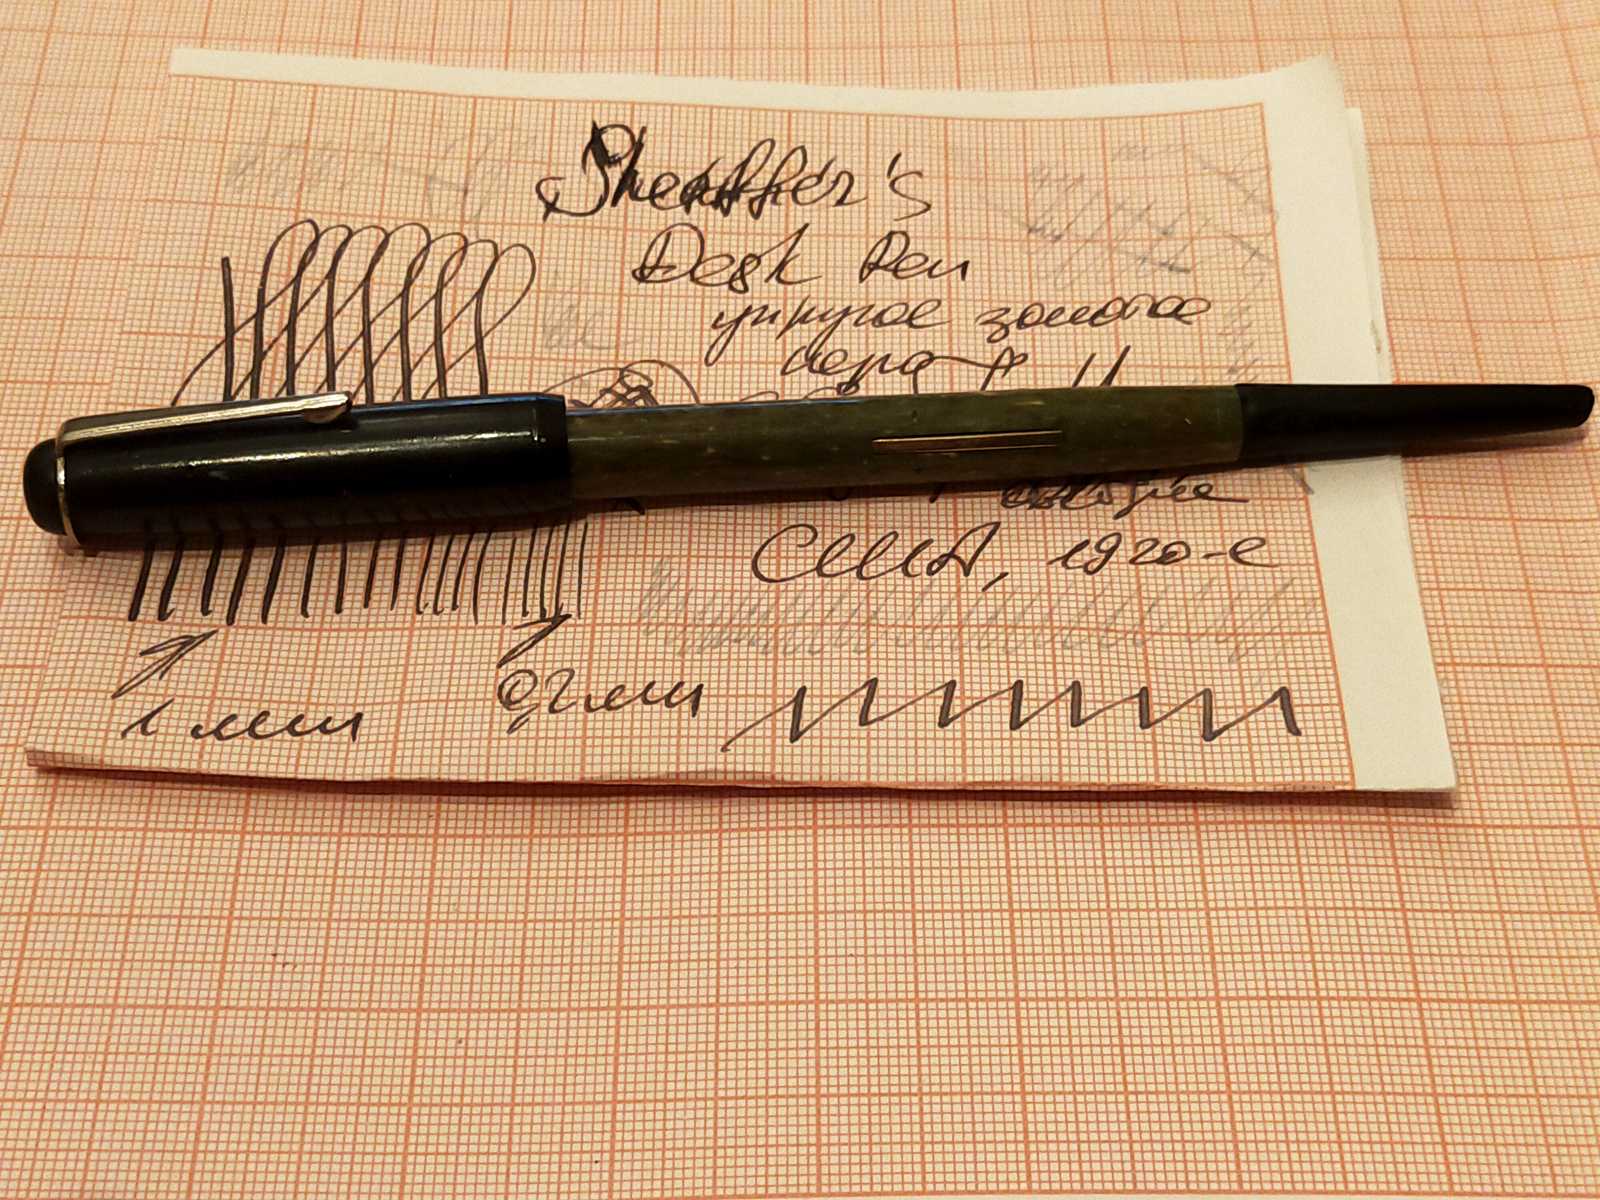 Sheaffer's
Desk Pen
упругое золотое
перо
США, 1920-е
1 мм
0,2 мм